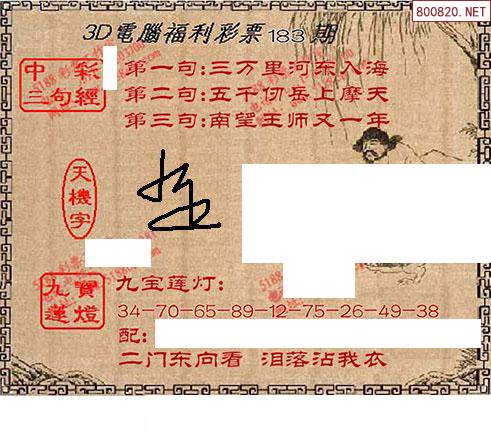 800820.NET
3D電腦福利彩票183期
中彩
三句經
第一句:三万里河东入海
第二句:五千仞岳上摩天
第三句:南望王师又一年
天機字
九寶
蓮燈
九宝莲灯:
34-70-65-89-12-75-26-49-38
配:
二门东向看 泪落沾我衣